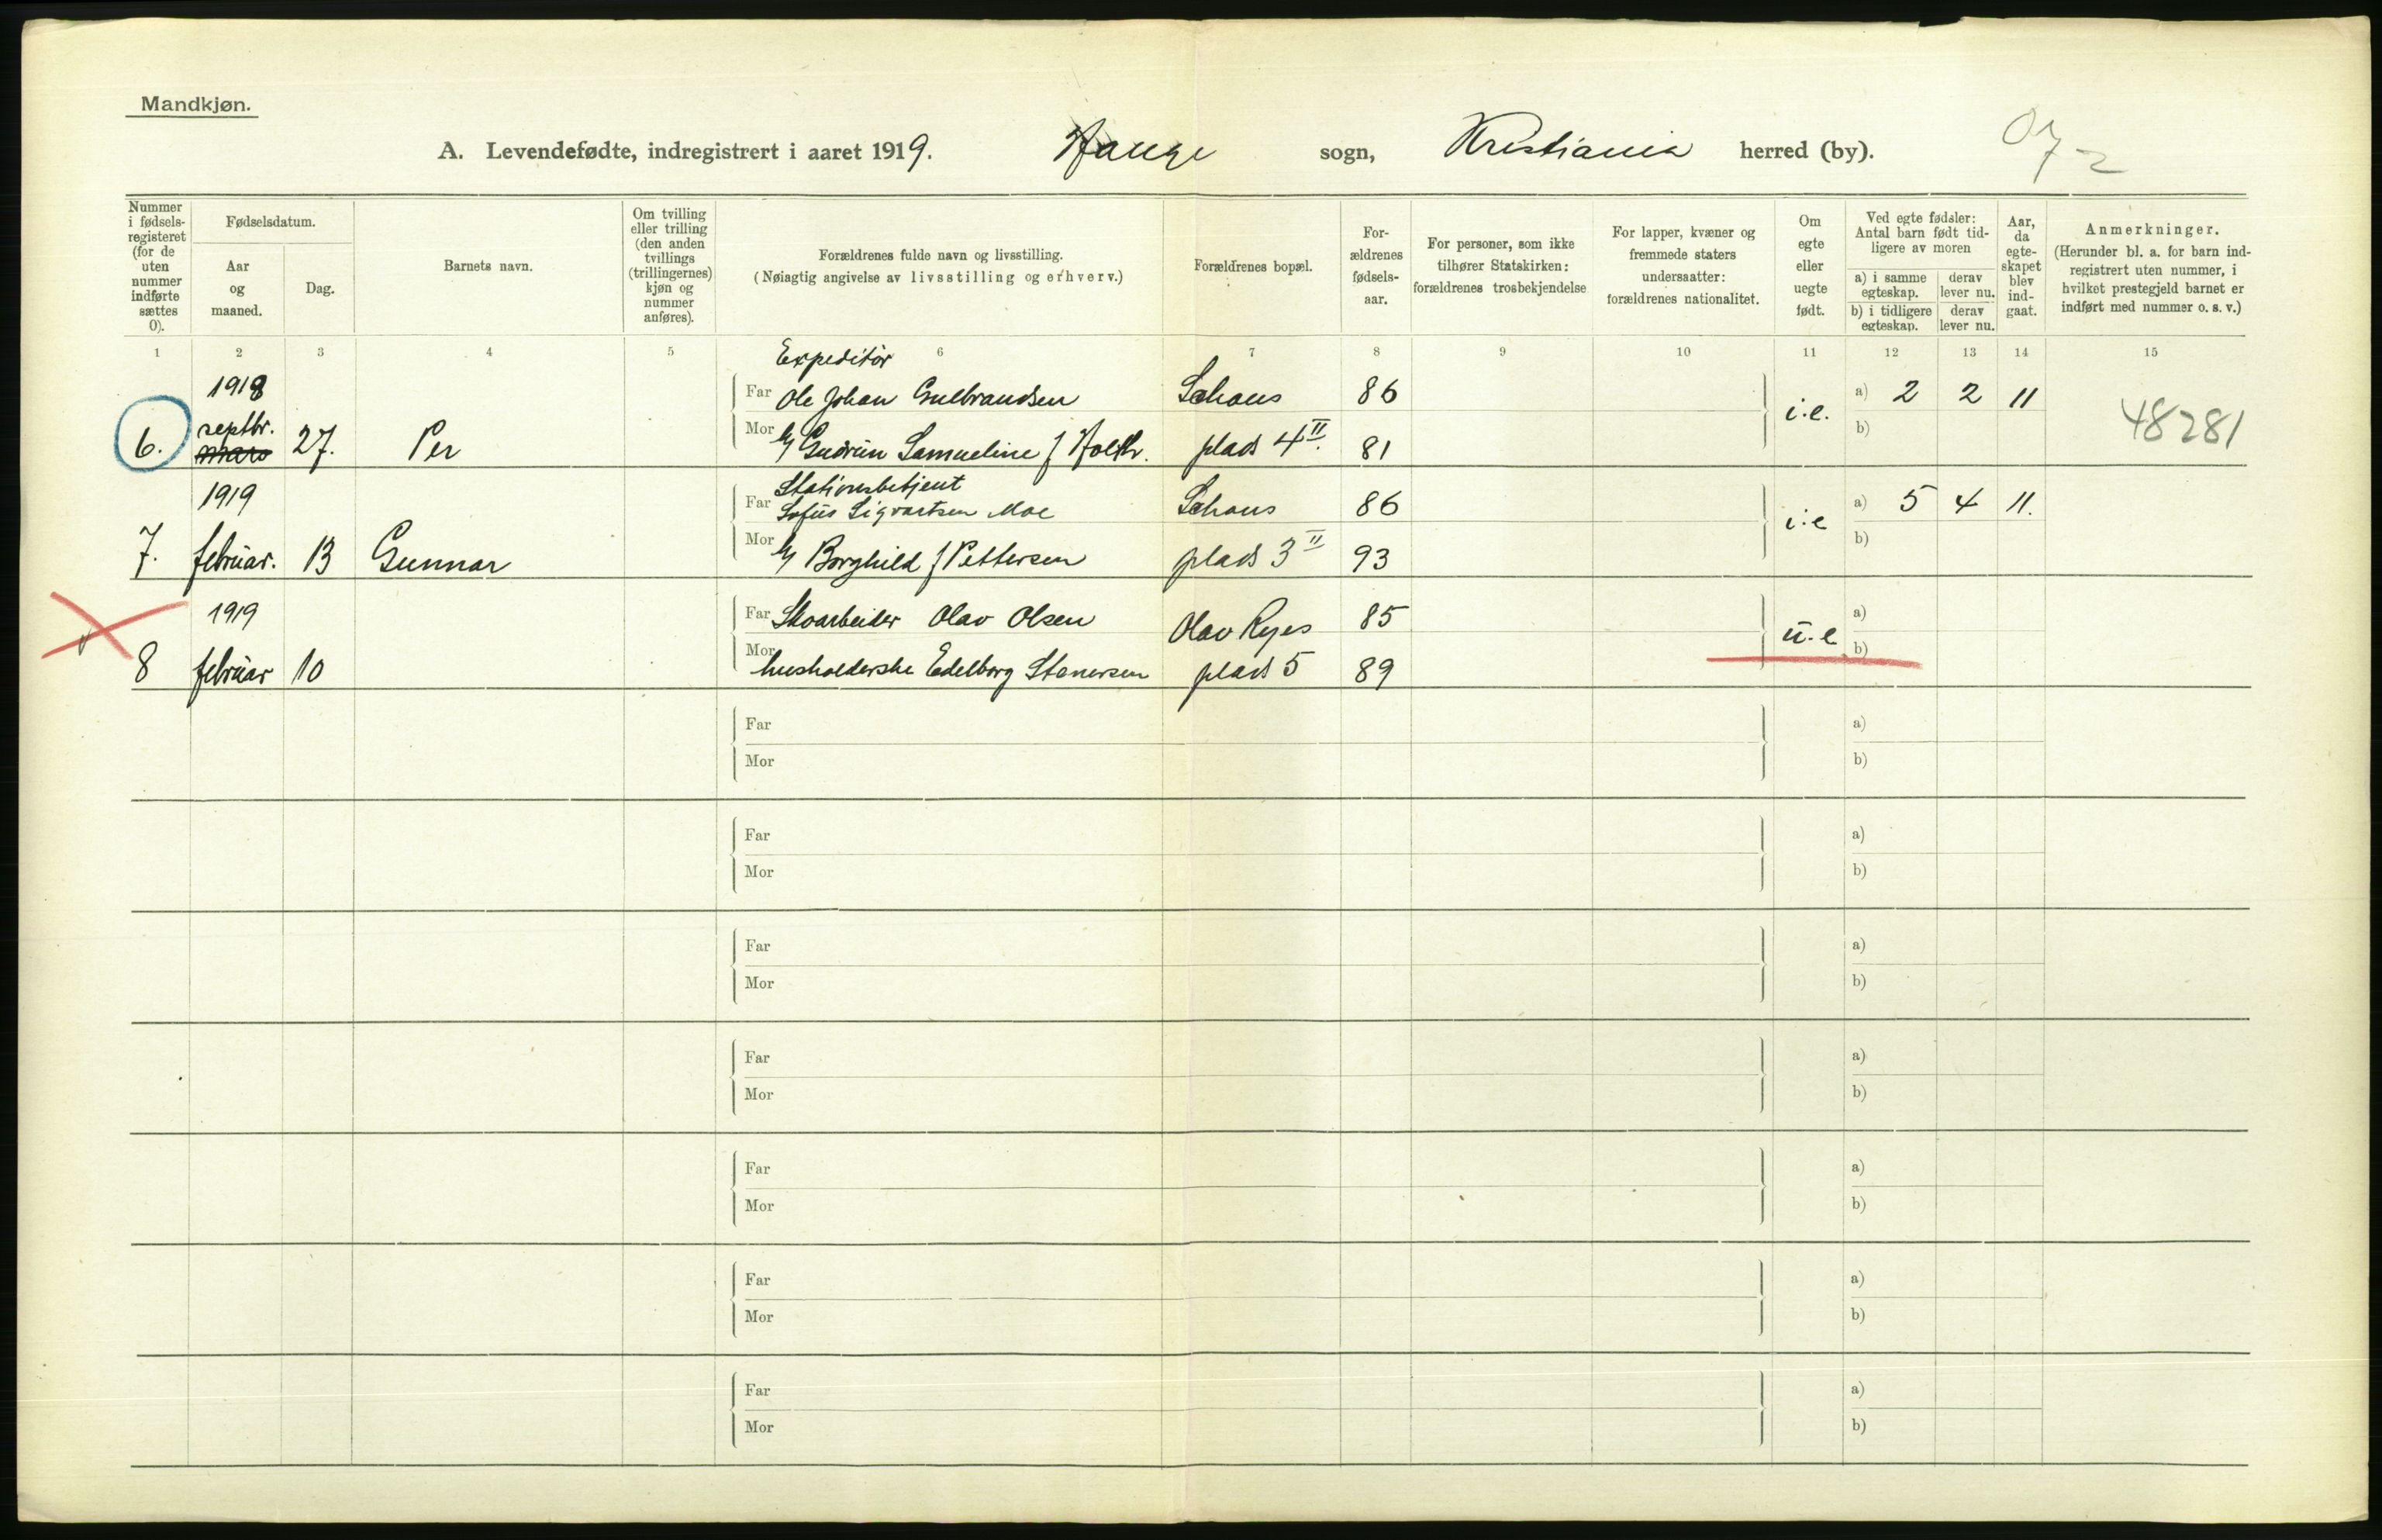 Mandkjøn.
A. Levendefødte, indregistrert i aaret 1919. Hauge sogn, Kristiania herred (by).
Nummer i fødsels-registeret (for de uten nummer indførte sættes 0).
Fødselsdatum.
Aar og maaned.
Dag.
Barnets navn.
Om tvilling eller trilling (den anden tvillings (trillingernes) kjøn og nummer anføres).
Forældrenes fulde navn og livsstilling.
(Nøiagtig angivelse av livsstilling og erhverv.)
Forældrenes bopæl.
For-ældrenes fødsels-aar.
For personer, som ikke tilhører Statskirken: forældrenes trosbekjendelse
For lapper, kvæner og fremmede staters undersaatter: forældrenes nationalitet.
Om egte eller uegte født.
Ved egte fødsler: Antal barn født tid-ligere av moren
a) i samme egteskap. derav lever nu.
b) i tidligere egteskap. derav lever nu.
Aar, da egte-skapet blev ind-gaat.
Anmerkninger.
(Herunder bl. a. for barn ind-registrert uten nummer, i hvilket prestegjeld barnet er indført med nummer o. s. v.)
1 2 3 4 5 6 7 8 9 10 11 12 13 14 15
Expeditør
1918 Far Ole Johan Gulbrandsen Schous 86 a) 2 2 11
septbr. i.e. 48281
6. mars 27. Per Mor Gudrun Samueline f Holth. plads 4 II. 81 b)
Stationsbetjent
1919 Far Sofus Sigvartsen Moe Schous 86 i.e a) 5 4 11.
7. februar. 13 Gunnar Mor Borghild f Pettersen plads 3 II 93 b)
1919 Far Skoarbeider Olav Olsen Olav Ryes 85 u.e a)
8 februar 10 Mor husholderske Edelborg Stenersen plads 5 89 b)
Far a)
Mor b)
Far a)
Mor b)
Far a)
Mor b)
Far a)
Mor b)
Far a)
Mor b)
Far a)
Mor b)
Far a)
Mor b)